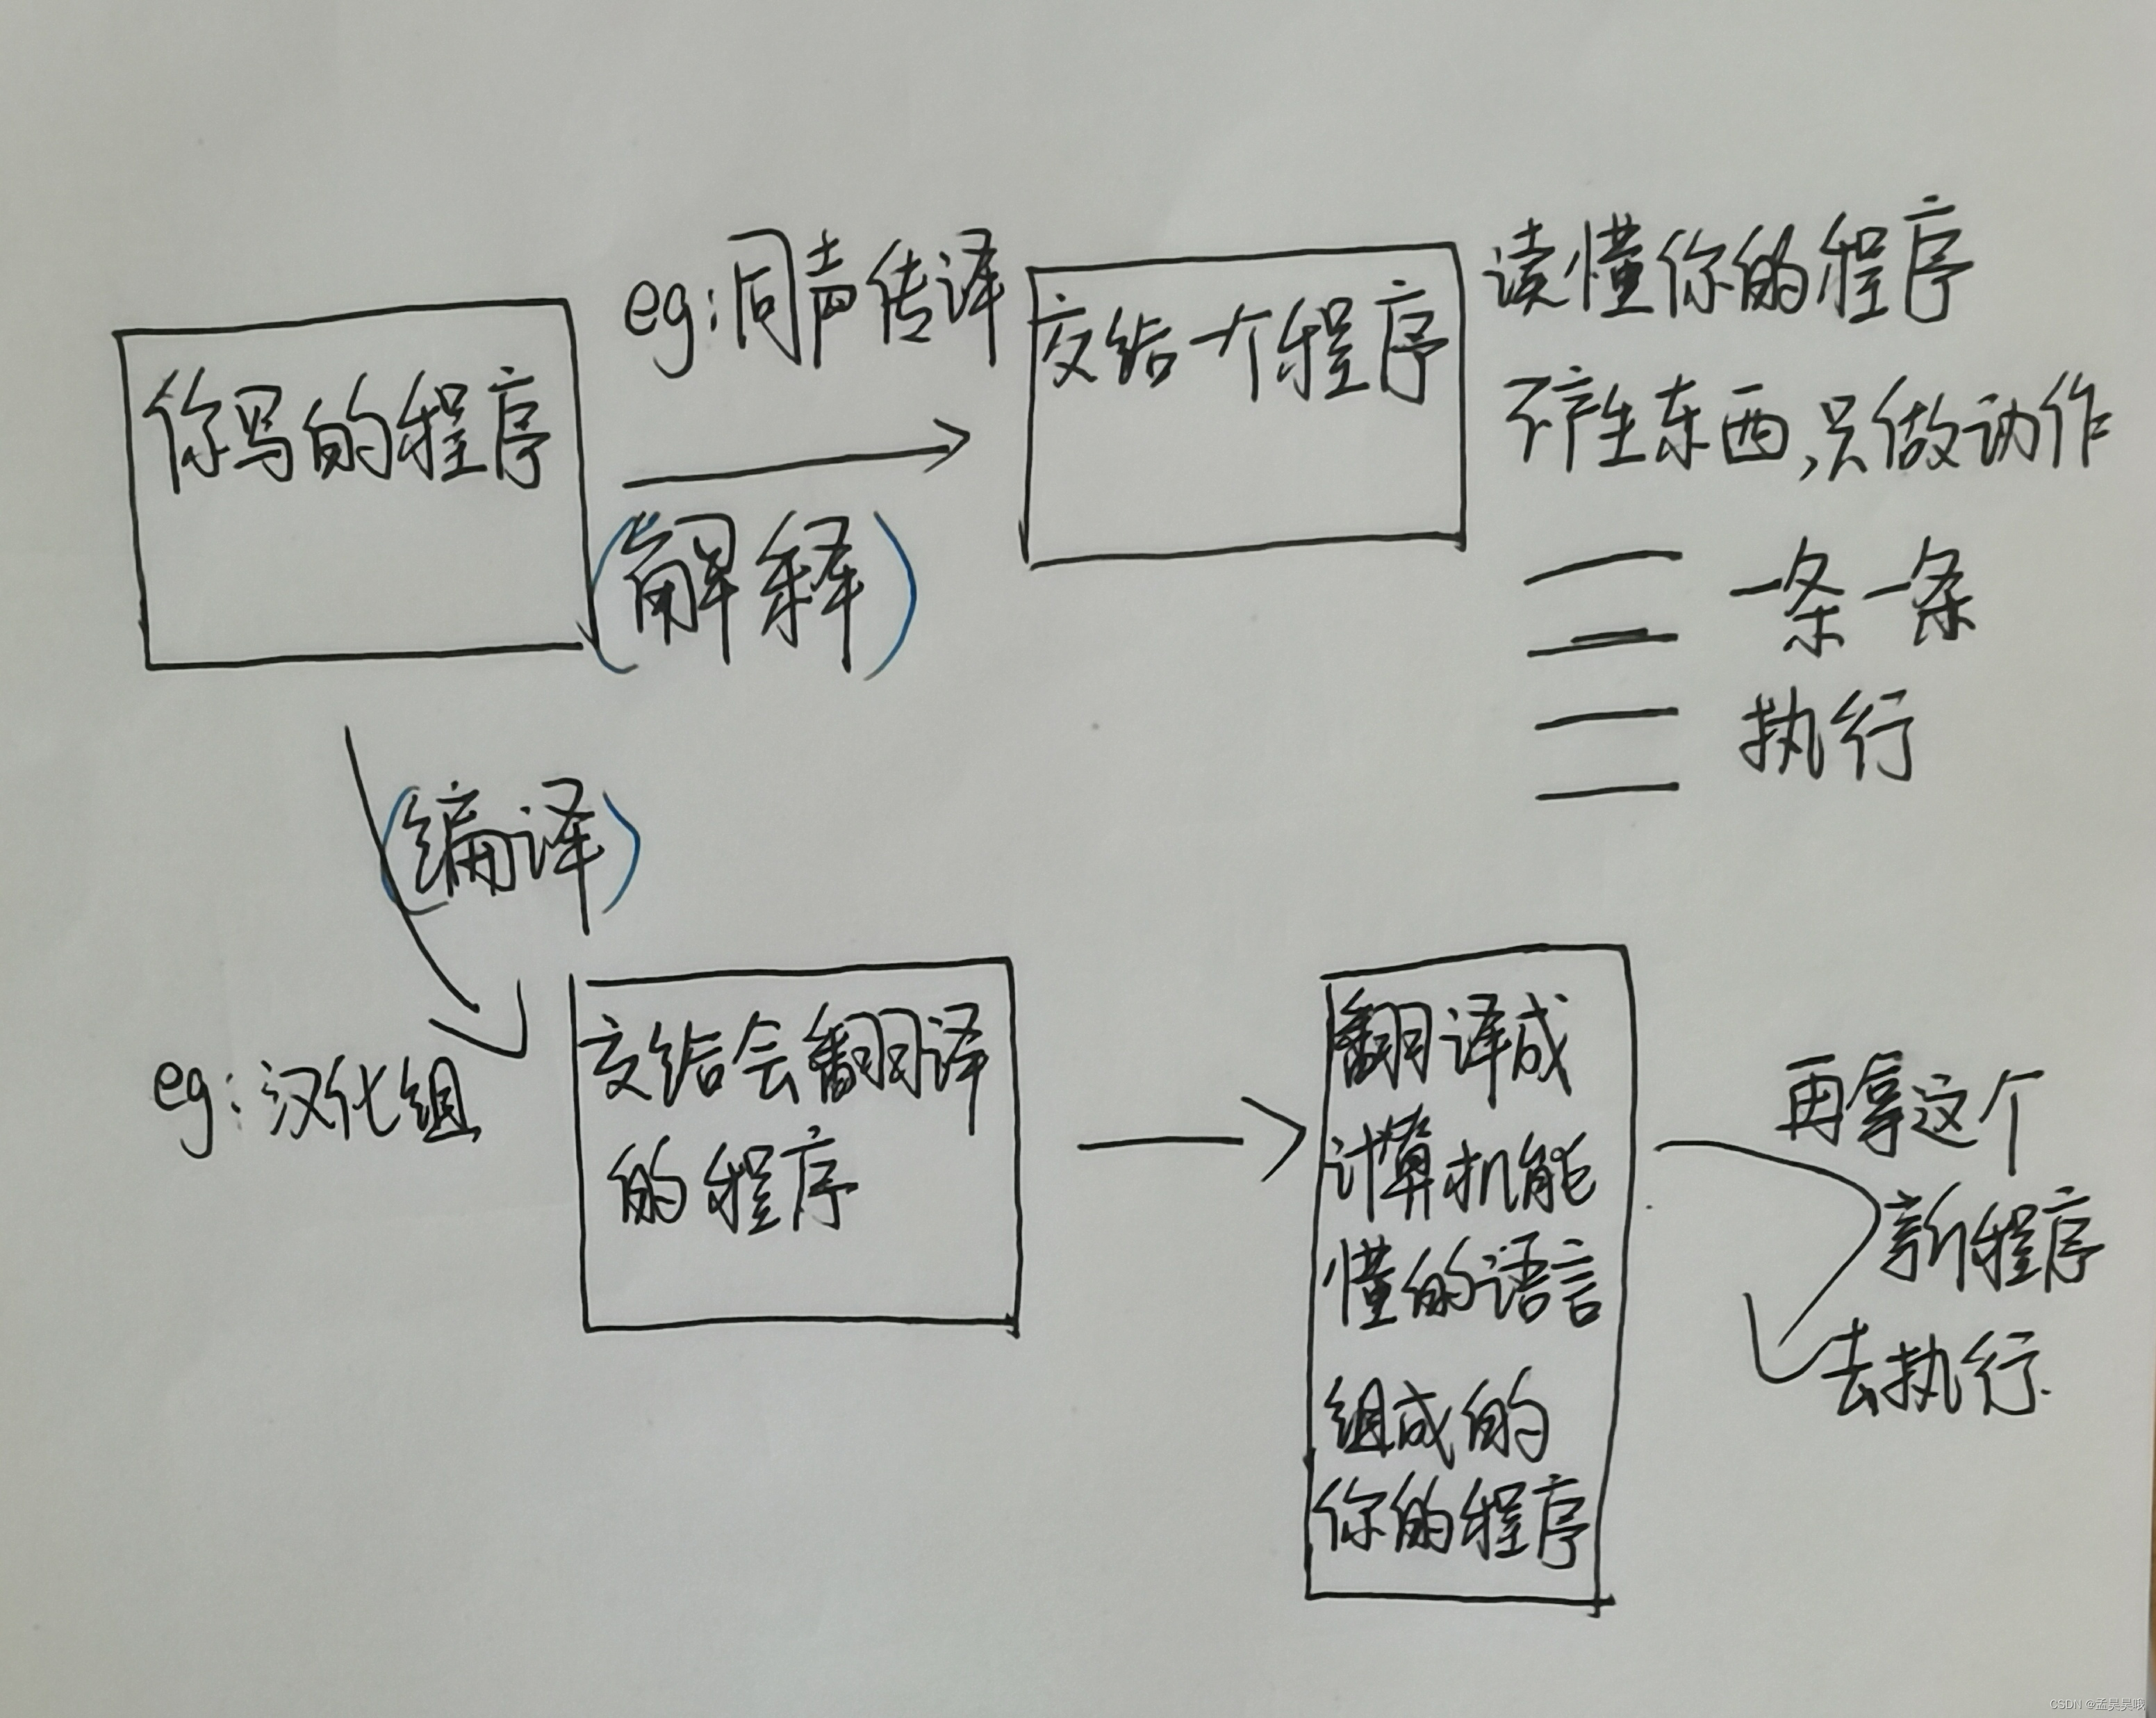 eg:同声传译
你写的程序
(解释)
交给一个程序
读懂你的程序
不产生东西,只做动作
一条一条
执行
(编译)
eg:汉化组
交给会翻译
的程序
翻译成
计算机能
懂的语言
组成的
你的程序
再拿这个
新程序
去执行.
CSDN @孟昊昊哦